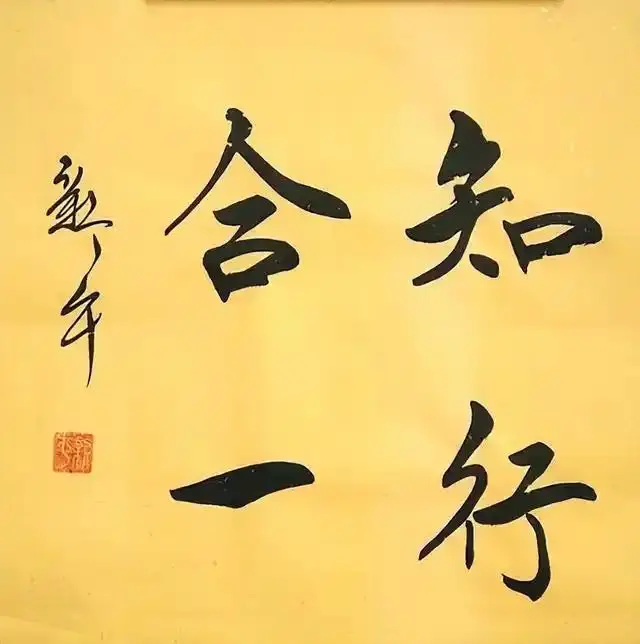 知行
合一